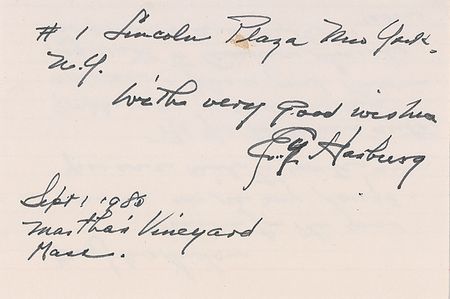 # 1 Lincoln Plaza New York.
N.Y.
With very good wishes
E.Y. Harburg
Sept 1 1980
Martha's Vineyard
Mass.